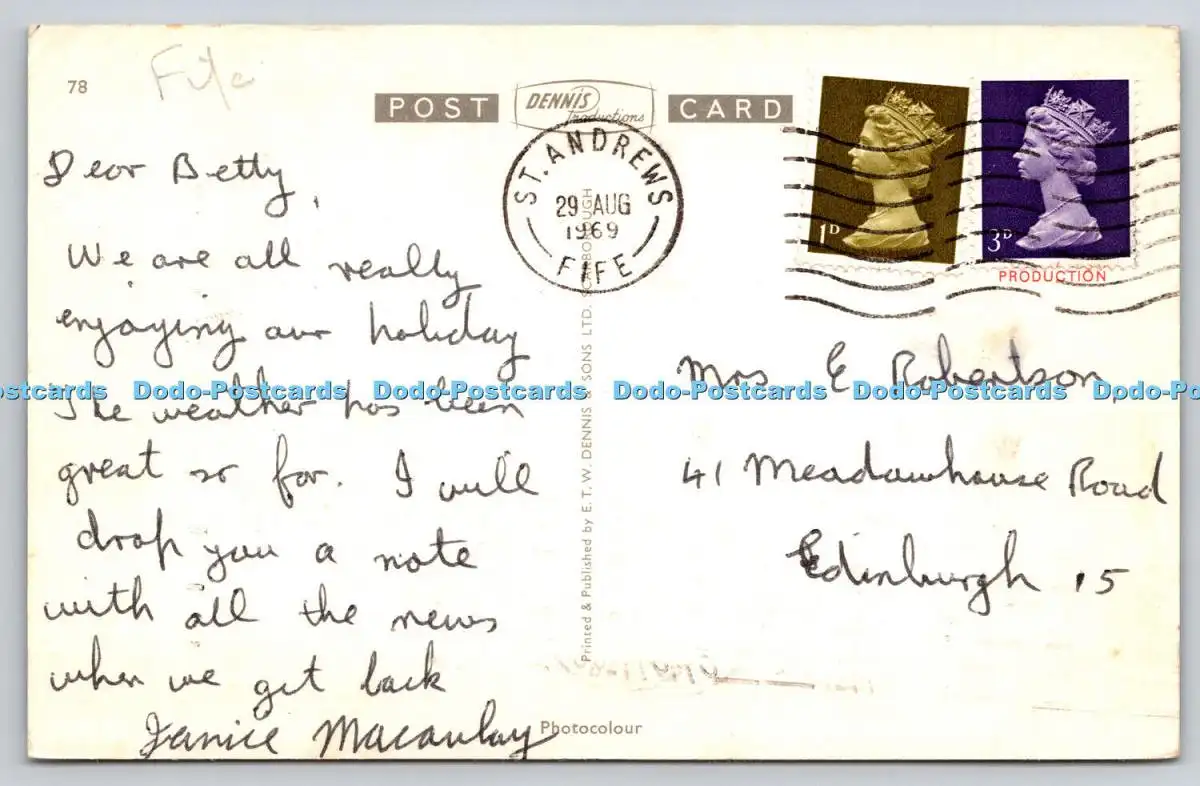 78
Fife
POST
DENNIS
Productions
CARD
ST. ANDREWS
29 AUG
1969
FIFE
1D
3D
PRODUCTION
Dear Betty,
We are all really
enjoying our holiday
The weather has been
great so far. I will
drop you a note
with all the news
when we get back
Janice Macaulay
Printed & Published by E. T. W. DENNIS & SONS LTD. SCARBOROUGH
Mrs E Robertson,
41 Meadowhouse Road
Edinburgh 15
Photocolour
postcards Dodo-Postcards Dodo-Postcards Dodo-Postcards Dodo-Postcards Dodo-Po